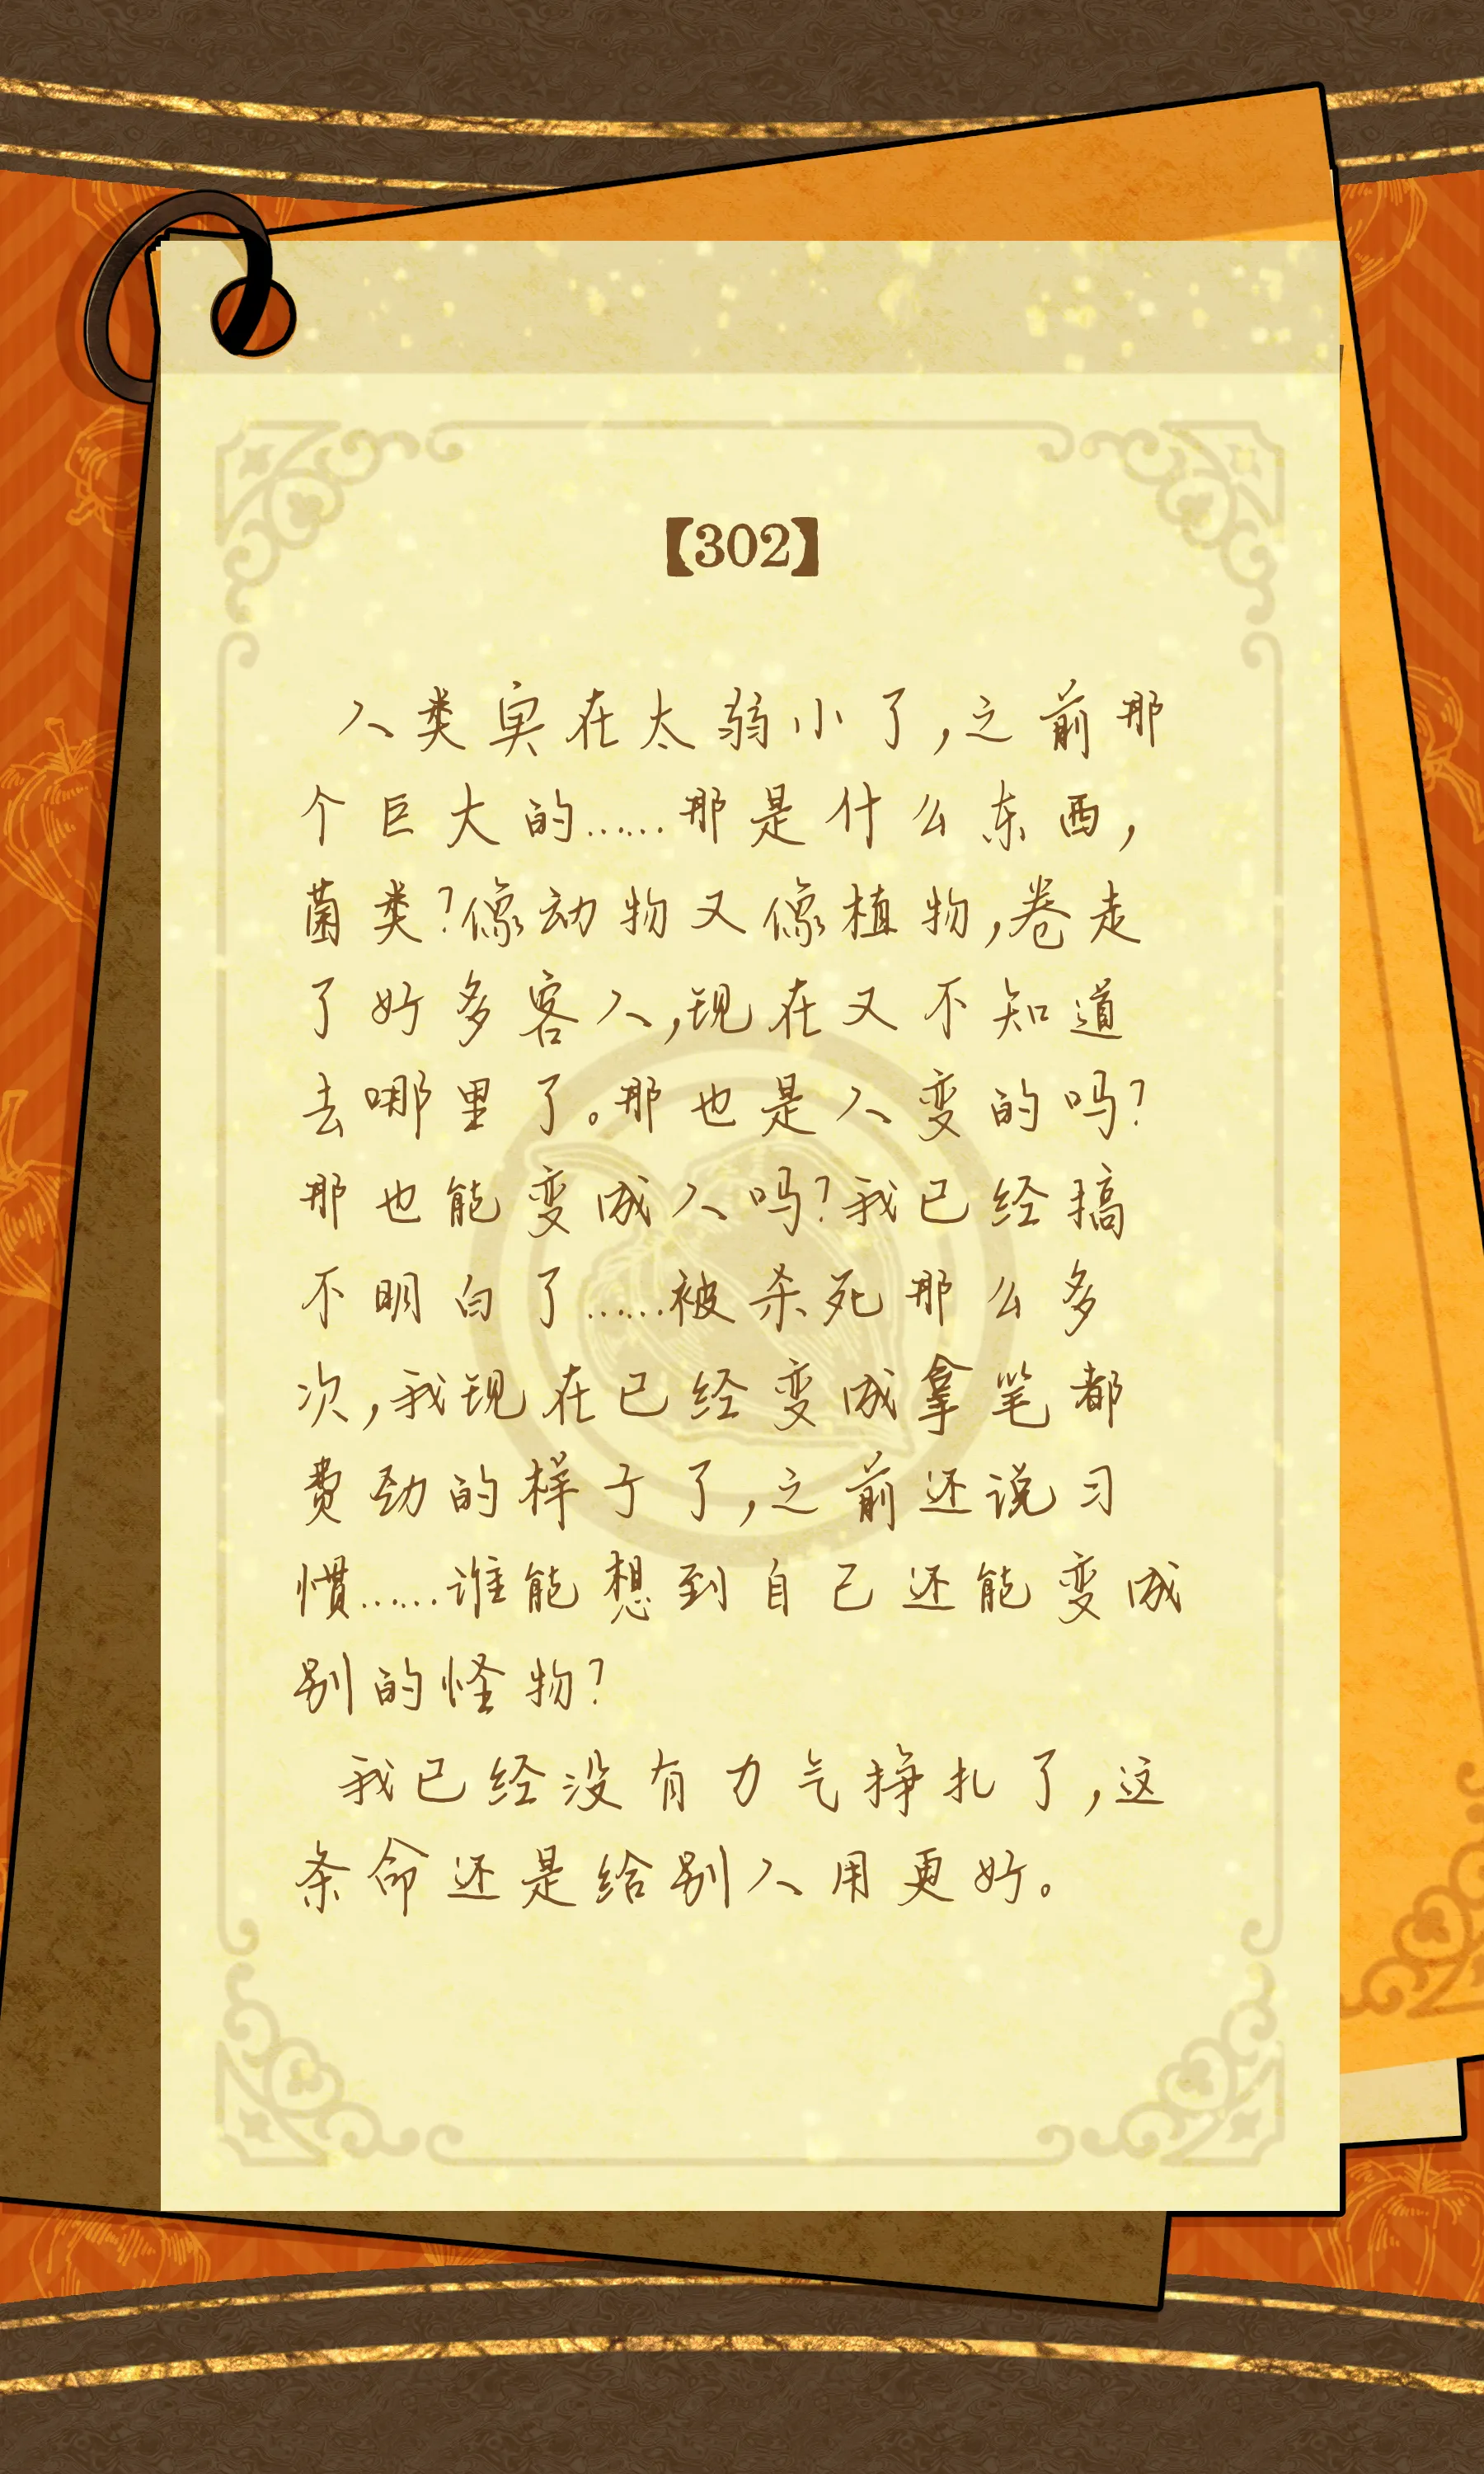 【302】
人类实在太弱小了,之前那
个巨大的……那是什么东西,
菌类?像动物又像植物,卷走
了好多客人,现在又不知道
去哪里了。那也是人变的吗?
那也能变成人吗?我已经搞
不明白了……被杀死那么多
次,我现在已经变成拿笔都
费劲的样子了,之前还说习
惯……谁能想到自己还能变成
别的怪物?
我已经没有力气挣扎了,这
条命还是给别人用更好。